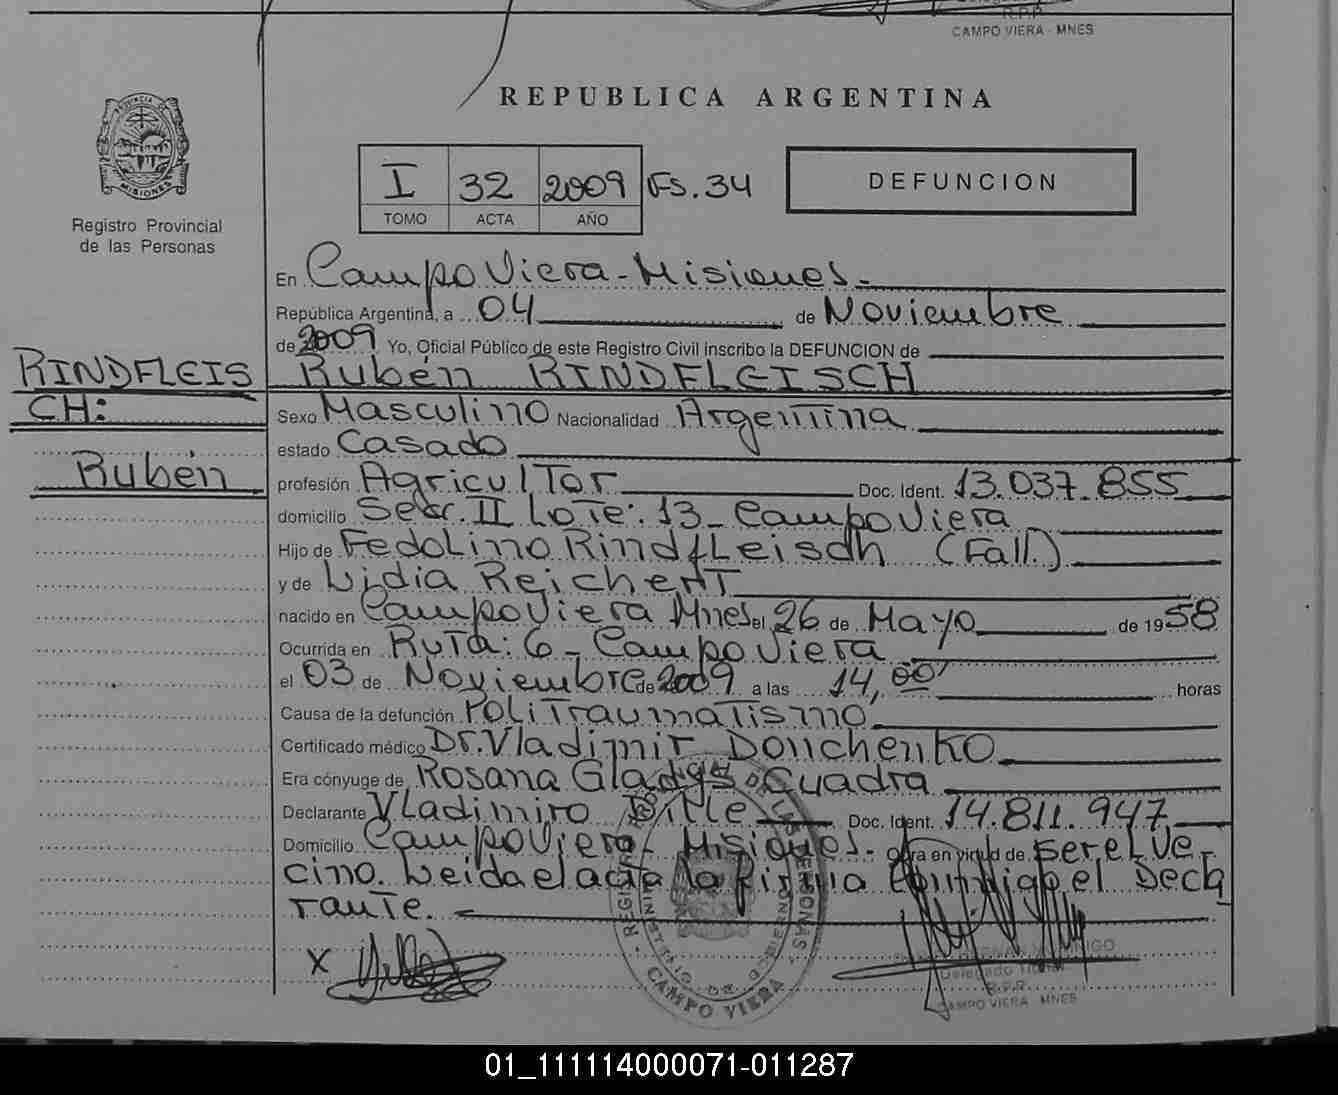 R.P.P.
CAMPO VIERA - MNES
REPUBLICA ARGENTINA
PROVINCIA DE
MISIONES
Registro Provincial
de las Personas
I 32 2009 Fs. 34
TOMO ACTA AÑO
DEFUNCION
En Campo Viera - Misiones.-
República Argentina, a 04 de Noviembre
de 2009 Yo, Oficial Público de este Registro Civil inscribo la DEFUNCION de
RINDFLEIS
CH:
Rubén
Rubén RINDFLEISCH
Sexo Masculino Nacionalidad Argentina
estado Casado
profesión Agricultor Doc. Ident. 13.037.855
domicilio Secc. II Lote: 13 - Campo Viera
Hijo de Fedolino Rindfleisch (Fall.)
y de Lidia Reichert
nacido en Campo Viera Mnes el 26 de Mayo de 1958
Ocurrida en Ruta: 6 - Campo Viera
el 03 de Noviembre de 2009 a las 14,00' horas
Causa de la defunción Politraumatismo
Certificado médico Dr. Vladimir Donchenko
Era cónyuge de Rosana Gladys Cuadra
Declarante Vladimiro Dille Doc. Ident. 14.811.947
Domicilio Campo Viera - Misiones. Obra en virtud de ser el ve-
cino. Leida el acta la firma conmigo el Decla
rante.
X
CAMPO VIERA
Delegado Titular
R.P.P.
CAMPO VIERA MNES
01_111114000071-011287